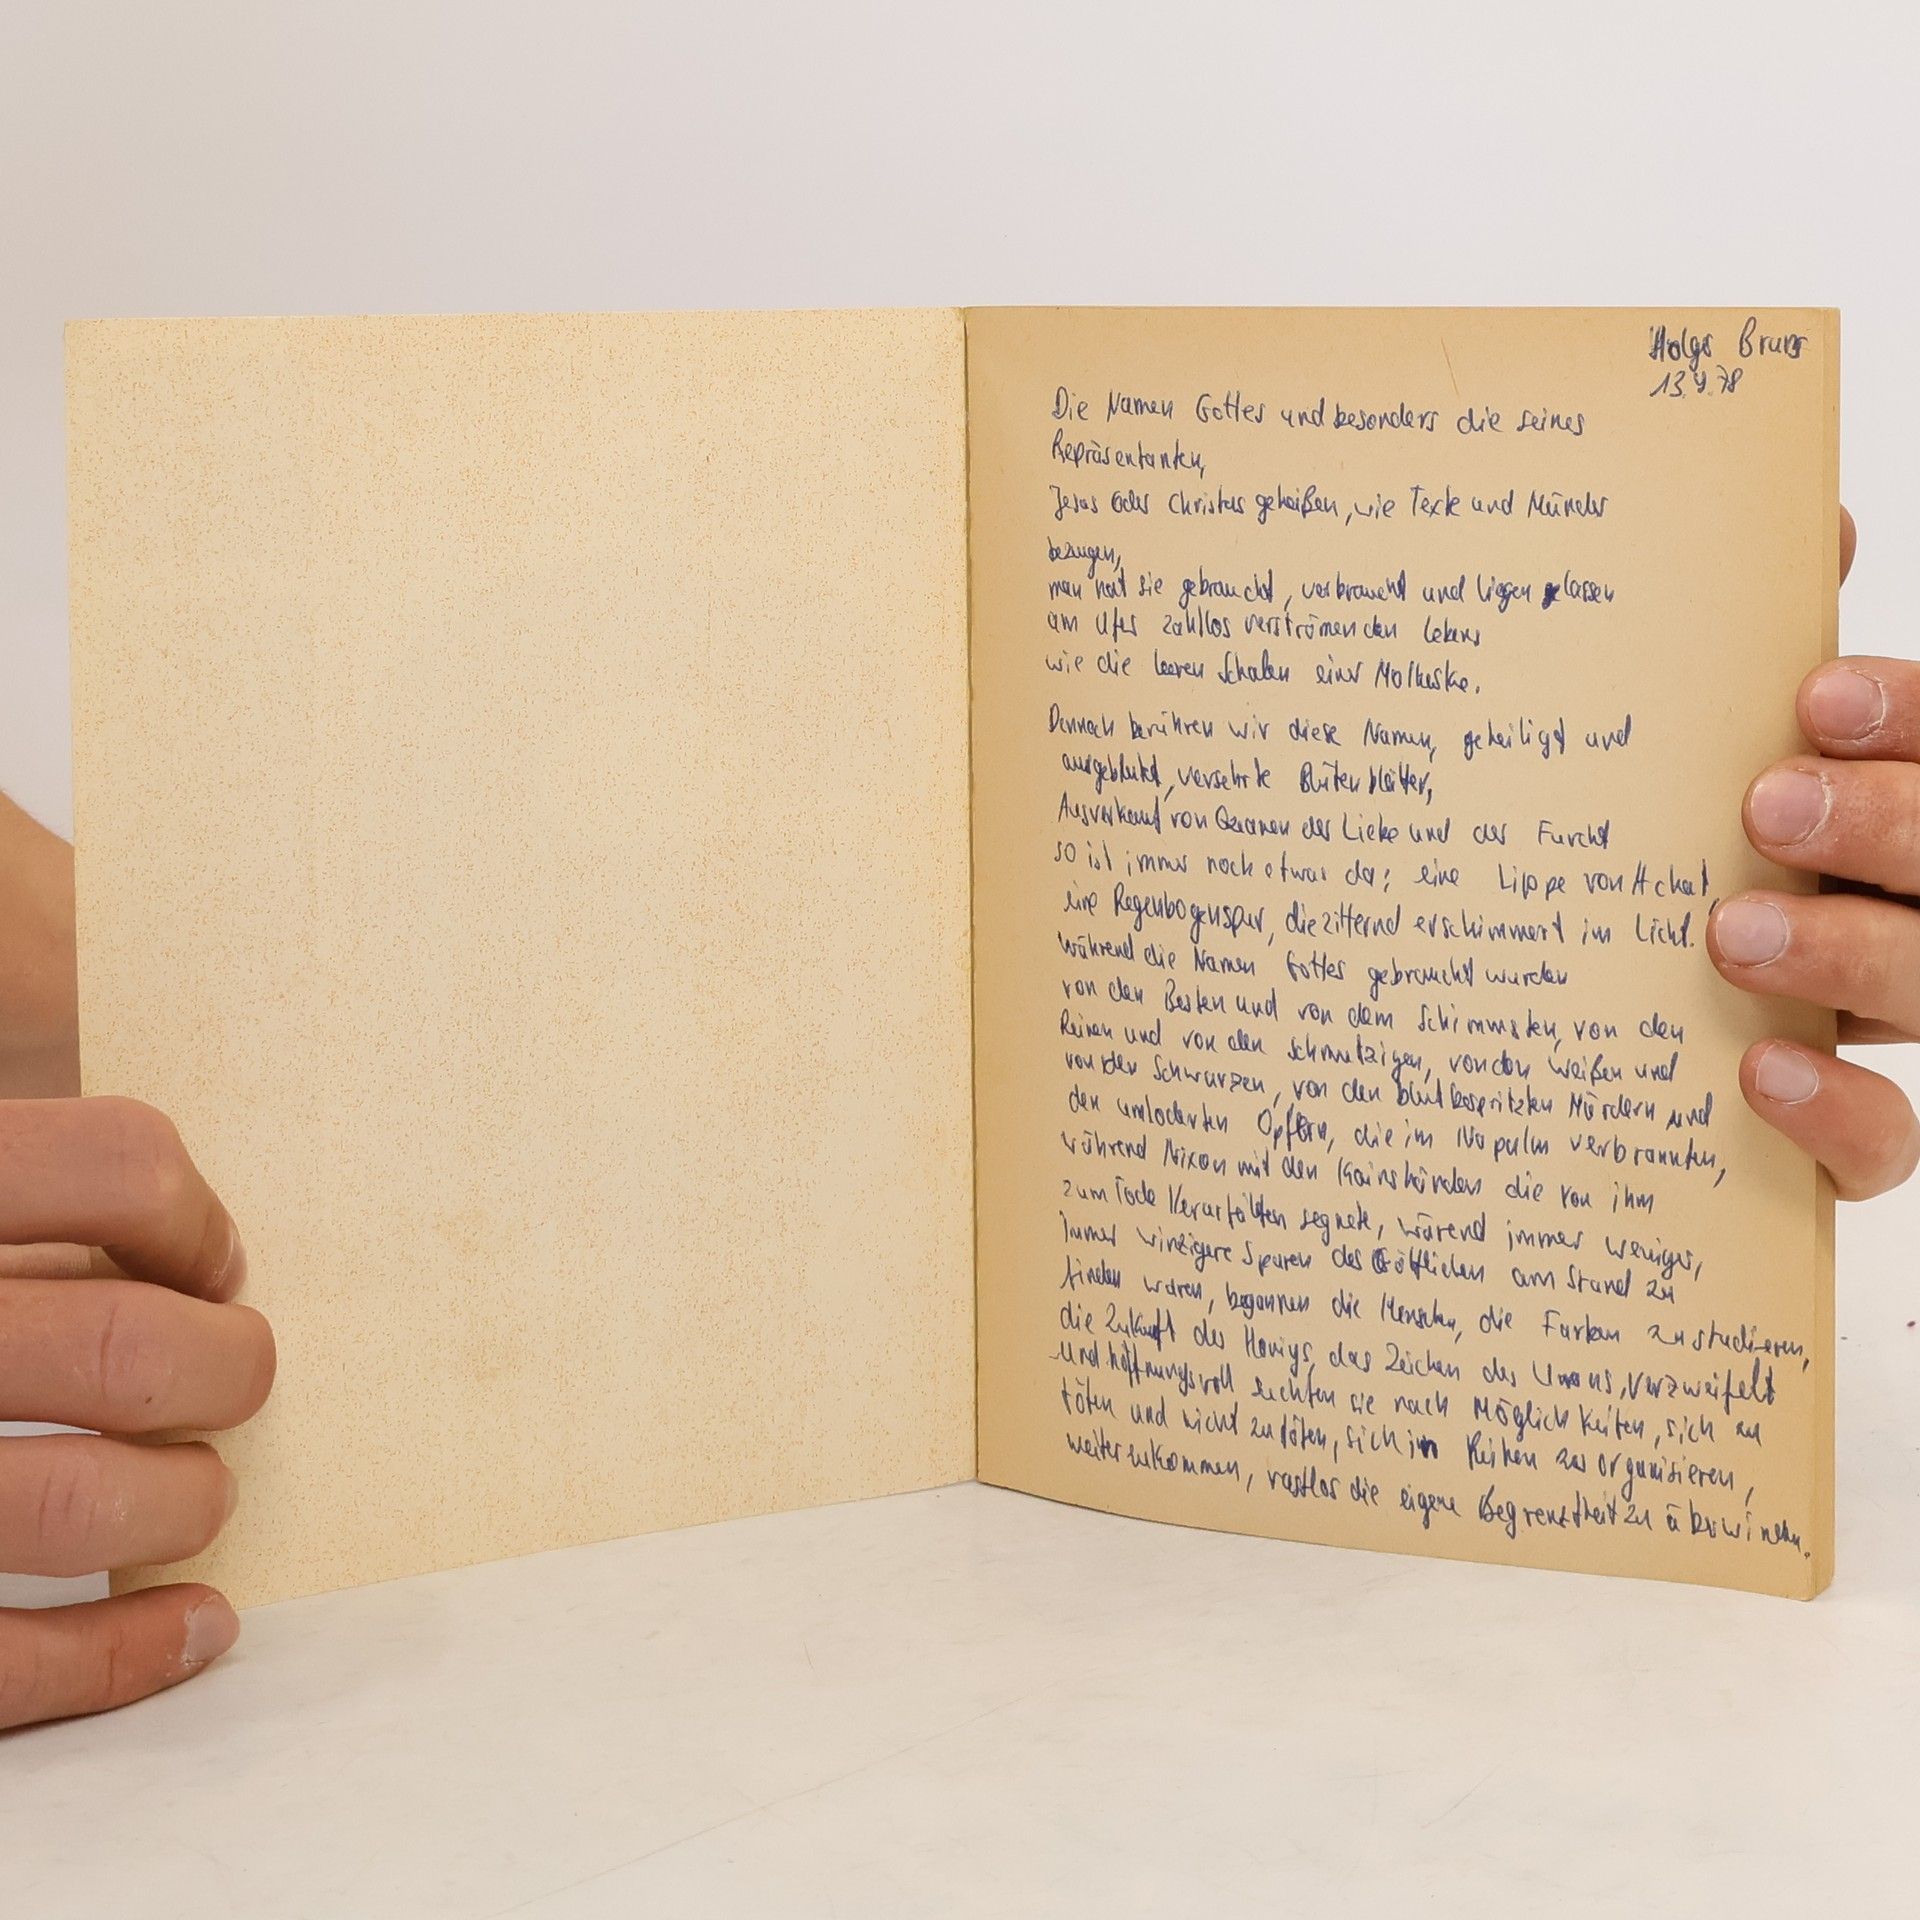 Holger Bruns
13.9.78
Die Namen Gottes und besonders die seines
Repräsentanten,
Jesus oder Christus geheißen, wie Texte und Münder
bezeugen,
man hat sie gebraucht, verbraucht und liegen gelassen
am Ufer zahllos verströmenden Lebens
wie die leeren Schalen einer Molluske.
Dennoch berühren wir diese Namen, geheiligt und
ausgeblutet, versehrte Blütenblätter,
Ausverkauf von Ozeanen der Liebe und der Furcht
so ist immer noch etwas da: eine Lippe von Achat,
eine Regenbogenspur, die zitternd erschimmert im Licht.
Während die Namen Gottes gebraucht wurden
von den Besten und von dem Schimmsten, von den
Reinen und von den schmutzigen, von den weißen und
von den Schwarzen, von den blutbespritzten Mördern und
den umloderten Opfern, die im Napalm verbrannten,
während Nixon mit den Kainshänden die von ihm
zum Tode Verurteilten segnete, wärend immer weniger,
immer winzigere Spuren des Göttlichen am Strand zu
finden waren, begannen die Menschen, die Farben zu studieren,
die Zukunft des Honigs, das Zeichen des Urans, Verzweifelt
und hoffnungsvoll suchten sie nach Möglichkeiten, sich zu
töten und nicht zu töten, sich in Reihen zu organisieren,
weiterzukommen, rastlos die eigene Begrenztheit zu überwinden.